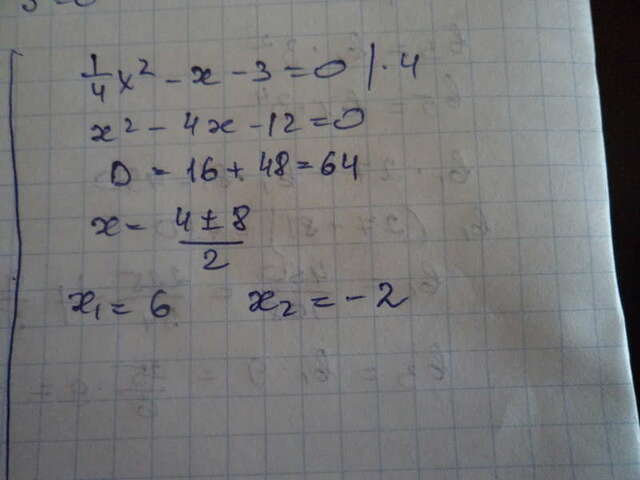 1/4 x² - x - 3 = 0 | · 4
x² - 4x - 12 = 0
D = 16 + 48 = 64
x = (4 ± 8)/2
x₁ = 6 x₂ = -2